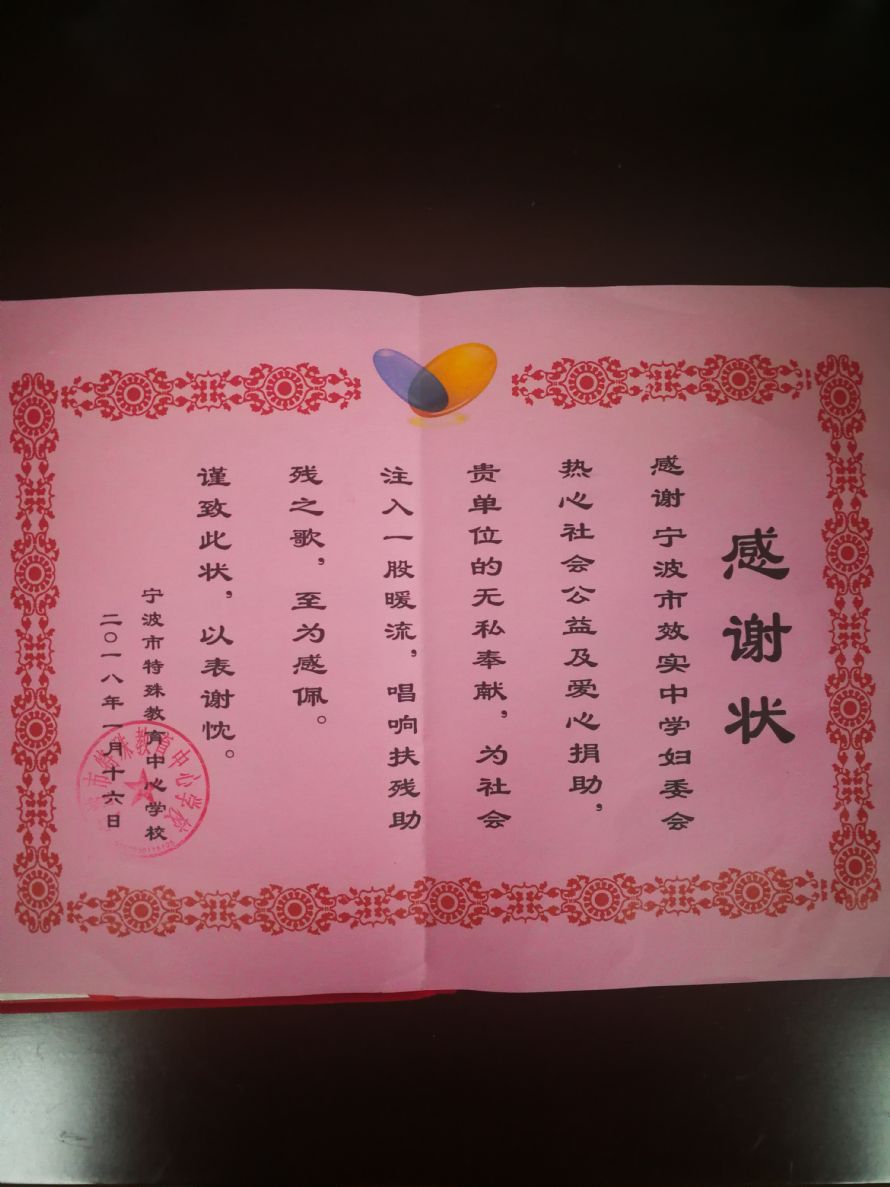 感谢状
感谢宁波市效实中学妇委会
热心社会公益及爱心捐助，
贵单位的无私奉献，为社会
注入一股暖流，唱响扶残助
残之歌，至为感佩。
谨致此状，以表谢忱。
宁波市特殊教育中心学校
二〇一八年一月十六日
市特殊教育中心学校